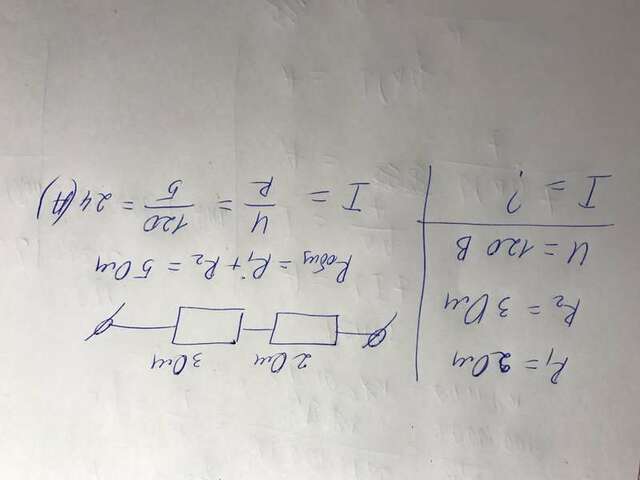 R₁ = 2 Ом
R₂ = 3 Ом
U = 120 В
I = ?
2 Ом 3 Ом
Rобщ = R₁ + R₂ = 5 Ом
I = U/R = 120/5 = 24 (А)